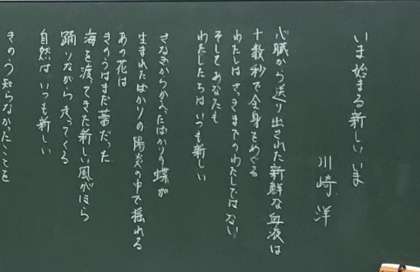 いま始まる新しいいま
川崎 洋
心臓から送り出された新鮮な血液は
十数秒で全身をめぐる
わたしはさっきまでのわたしではない
そしてあなたも
わたしたちはいつも新しい
さなぎからかえったばかりの蝶が
生まれたばかりの陽炎の中で揺れる
あの花は
きのうはまだ蕾だった
海を渡ってきた新しい風がほら
踊りながら走ってくる
自然はいつも新しい
きのう知らなかったことを